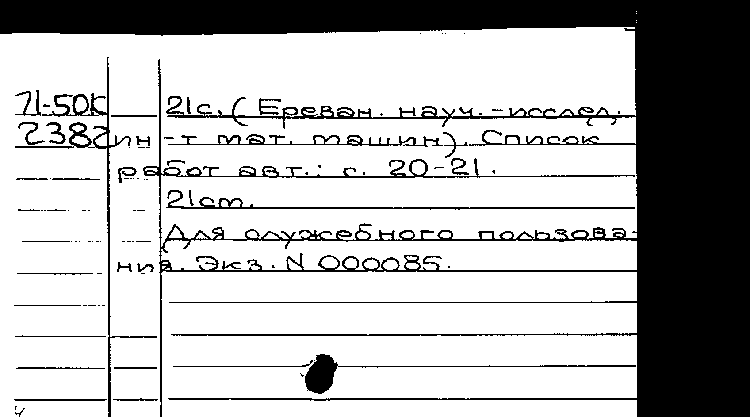 71-50К 21с. (Ереван. науч.-исслед.
2382 ин-т мат. машин). Список
работ авт.: с. 20-21.
21см.
Для служебного пользова-
ния. Экз. N 000085.